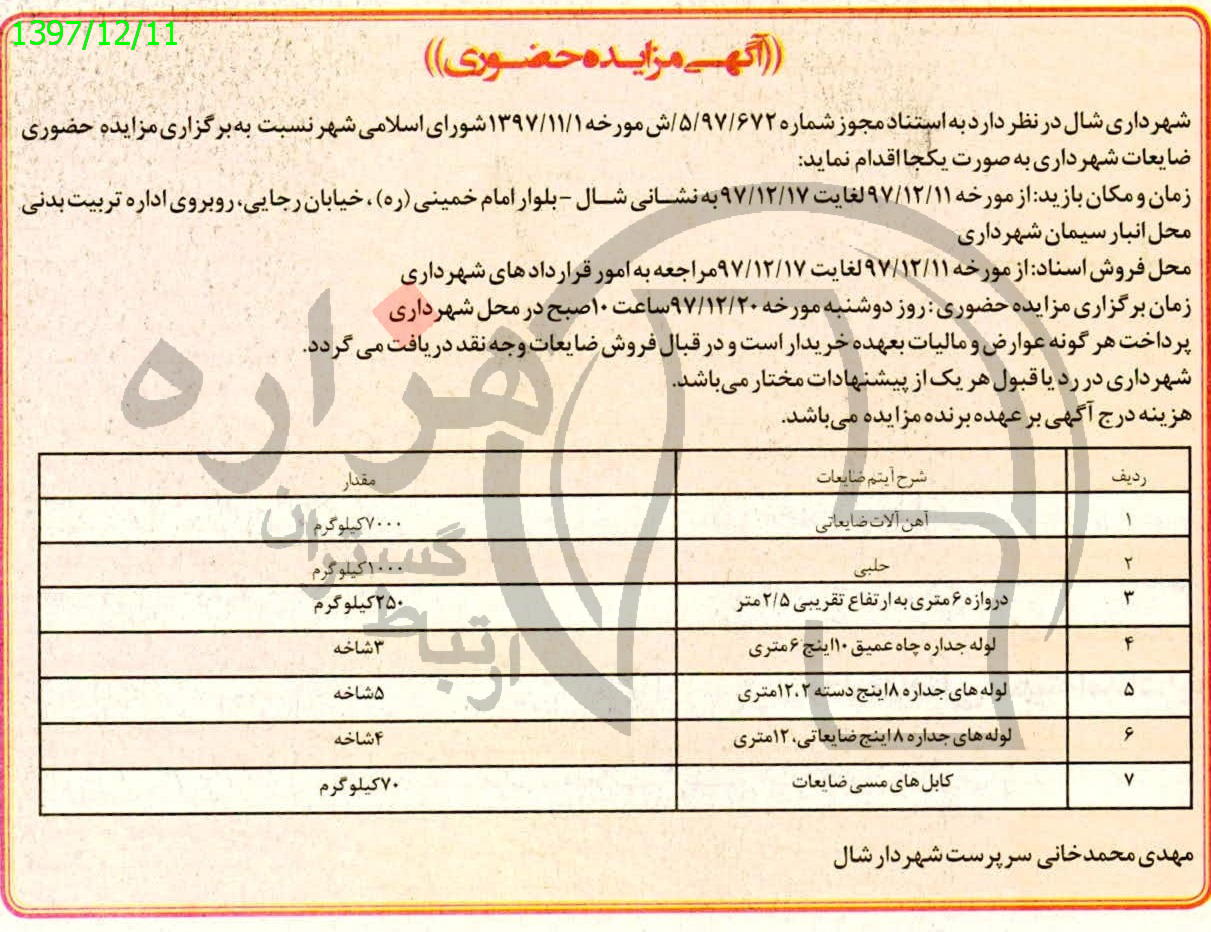 1397/12/11
((آگهی مزایده حضوری))
شهرداری شال در نظر دارد به استناد مجوز شماره ۵/۹۷/۶۷۲/ش مورخه ۱۳۹۷/۱۱/۱ شورای اسلامی شهر نسبت به برگزاری مزایده حضوری
ضایعات شهرداری به صورت یکجا اقدام نماید:
زمان و مکان بازید: از مورخه ۹۷/۱۲/۱۱ لغایت ۹۷/۱۲/۱۷ به نشانی شال - بلوار امام خمینی (ره)، خیابان رجایی، روبروی اداره تربیت بدنی
محل انبار سیمان شهرداری
محل فروش اسناد: از مورخه ۹۷/۱۲/۱۱ لغایت ۹۷/۱۲/۱۷ مراجعه به امور قراردادهای شهرداری
زمان برگزاری مزایده حضوری: روز دوشنبه مورخه ۹۷/۱۲/۲۰ ساعت ۱۰ صبح در محل شهرداری
پرداخت هر گونه عوارض و مالیات بعهده خریدار است و در قبال فروش ضایعات وجه نقد دریافت می گردد.
شهرداری در رد یا قبول هر یک از پیشنهادات مختار می‌باشد.
هزینه درج آگهی بر عهده برنده مزایده می‌باشد.
ردیف شرح آیتم ضایعات مقدار
۱ آهن آلات ضایعاتی ۷۰۰۰کیلوگرم
۲ حلبی ۱۰۰۰کیلوگرم
۳ دروازه ۶متری به ارتفاع تقریبی ۲/۵متر ۲۵۰کیلوگرم
۴ لوله جداره چاه عمیق ۱۰اینچ ۶متری ۳شاخه
۵ لوله های جداره ۸اینج دسته ۲، ۱۲متری ۵شاخه
۶ لوله های جداره ۸اینج ضایعاتی، ۱۲متری ۴شاخه
۷ کابل های مسی ضایعات ۷۰کیلوگرم
مهدی محمدخانی سرپرست شهردار شال
هزاره
گستران
ارتباط